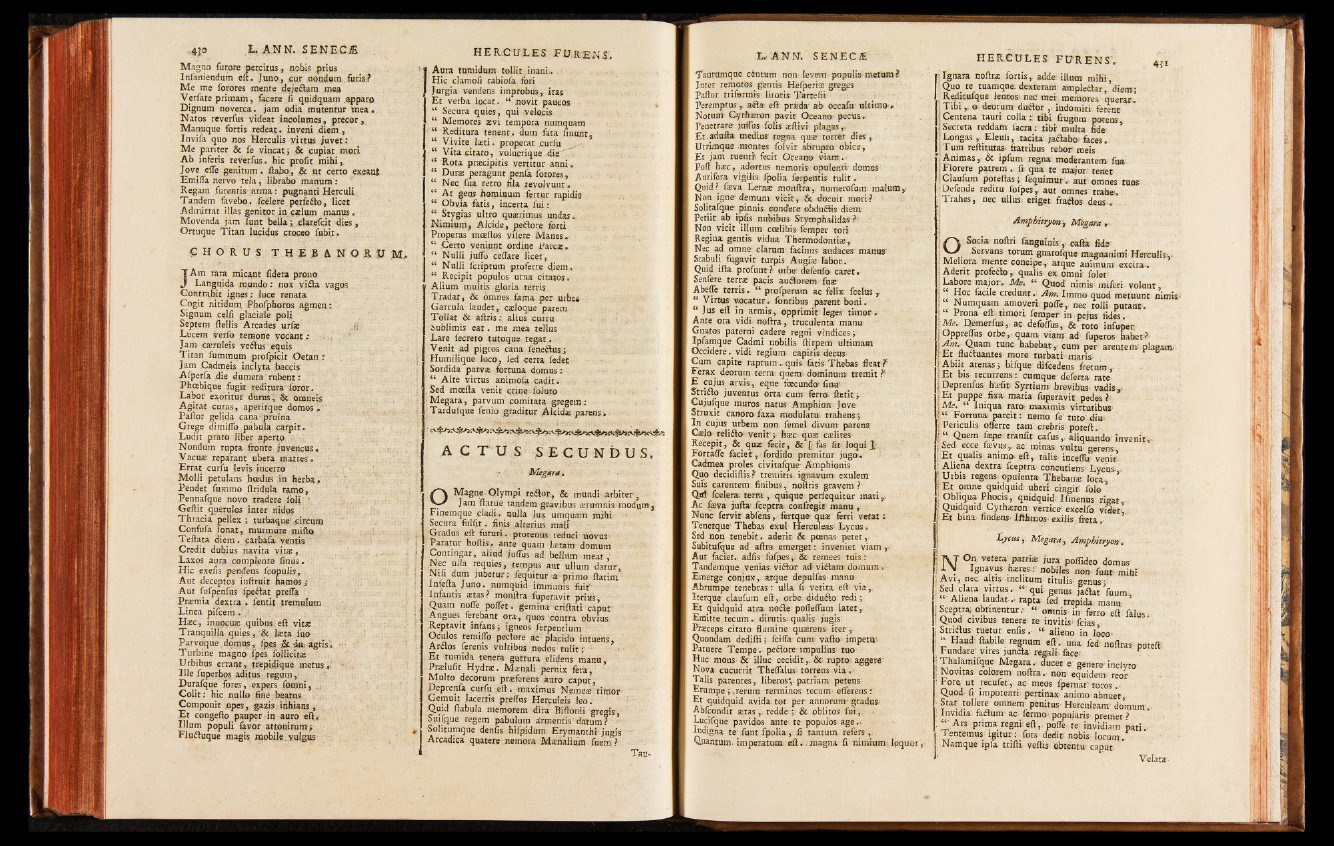 430 L. ANN. SENECÆ
Magno furore percitus, nobis prius
Inſaniendum eſt. Juno, cur nondum furis?
Me me ſorores mente dejectam mea
Verſate primam, facere ſi quidquam apparo
Dignum noverca. jam odia mutentur mea.
Natos reverſus videat incolumes, precor,
Manuque fortis redeat. inveni diem,
Inviſa quo nos Herculis virtus juvet:
Me pariter & ſe vincat; & cupiat mori
Ab inferis reverſus. hic proſit mihi,
Jove eſſe genitum. ſtabo, & ut certo exeant
Emiſſa nervo tela, librabo manum:
Regam furentis arma: pugnanti Herculi
Tandem favebo. ſcelere perfecto, licet
Admittat illas genitor in cælum manus.
Movenda jam ſunt bella; clareſcit dies,
Ortuque Titan lucidus croceo ſubit.
CHORUS THEBANORUM.
JAm rara micant ſidera prono
Languida mundo: nox victa vagos
Contrahit ignes: luce renata
Cogit nitidum Phoſphoros agmen:
Signum celſi glaciale poli
Septem ſtellis Arcades urſæ
Lucem verſo temone vocant:
Jam cæruleis vectus equis
Titan ſummum proſpicit Oetan:
Jam Cadmeis inclyta baccis
Aſperſa die dumeta rubent:
Phœbique fugit reditura ſoror.
Labor exoritur durus, & omneis
Agitat curas, aperitque domos.
Paſtor gelida cana pruina
Grege dimiſſo pabula carpit.
Ludit prato liber aperto
Nondum rupta fronte juvencus.
Vacuæ reparant ubera matres.
Errat curſu levis incerto
Molli petulans hœdus in herba.
Pendet ſummo ſtridula ramo,
Pennaſque novo tradere ſoli
Geſtit querulos inter nidos
Thracia pellex; turbaque circum
Confuſa ſonat, murmure miſto
Teſtata diem. carbaſa ventis
Credit dubius navita vitæ,
Laxos aura complente ſinus.
Hic exeſis pendens ſcopulis,
Aut deceptos inſtruit hamos,
Aut ſuſpenſus ſpectat preſſa
Præmia dextra. ſentit tremulum
Linea piſcem.
Hæc, innocuæ quibus eſt vitæ
Tranquilla quies, & læta ſuo
Parvoque domus, ſpes & in agris.
Turbine magno ſpes ſollicitæ
Urbibus errant, trepidique metus.
Ille ſuperbos aditus regum,
Duraſque fores, expers ſomni,
Colit: hic nullo fine beatus
Componit opes, gazis inhians,
Et congeſto pauper in auro eſt.
Illum populi favor attonitum;
Fluctuque magis mobile vulgus
HERCULES FURENS.
Aura tumidum tollit inani.
Hic clamoſi rabioſa fori
Jurgia vendens improbus, iras
Et verba locat. “ novit paucos
“ Secura quies, qui velocis
“ Memores ævi tempora numquam
“ Reditura tenent. dum fata ſinunt,
“ Vivite læti. properat curſu
“ Vita citato, volucrique die
“ Rota præcipitis vertitur anni.
“ Duræ peragunt penſa ſorores,
“ Nec ſua retro fila revolvunt.
“ At gens hominum fertur rapidis
“ Obvia fatis, incerta ſui:
“ Stygias ultro quærimus undas.
Nimium, Alcide, pectore forti
Properas mœſtos viſere Manes.
“ Certo veniunt ordine Parcæ.
“ Nulli juſſo ceſſare licet,
“ Nulli ſcriptum proferre diem.
“ Recipit populos urna citatos.
Alium multis gloria terris
Tradat, & omnes fama per urbes
Garrula laudet, cæloque parem
Tollat & aſtris: altus curru
Sublimis eat. me mea tellus
Lare ſecreto tutoque tegat.
Venit ad pigros cana ſenectus;
Humilique loco, ſed certa ſedet
Sordida parvæ fortuna domus:
“ Alte virtus animoſa cadit.
Sed mœſta venit crine ſoluto
Megara, parvum comitata gregem:
Tarduſque ſenio graditur Alcidæ parens.
ACTUS SECUNDUS.
Megara.
O Magne Olympi rector, & mundi arbiter,
Jam ſtatue tandem gravibus ærumnis modum,
Finemque cladi. nulla lux umquam mihi
Secura fulſit. finis alterius mali
Gradus eſt futuri. protenus reduci novus
Paratur hoſtis. ante quam lætam domum
Contingat, aliud juſſus ad bellum meat,
Nec ulla requies, tempus aut ullum datur,
Niſi dum jubetur: ſequitur a primo ſtatim
Infeſta Juno. numquid immunis fuit
Infantis ætas? monſtra ſuperavit prius,
Quam noſſe poſſet. gemina criſtati caput
Angues ferebant ora, quos contra obvius
Reptavit infans; igneos ſerpentium
Oculos remiſſo pectore ac placido intuens,
Arctos ſerenis vultibus nodos tulit;
Et tumida tenera guttura elidens manu,
Præluſit Hydræ. Mænali pernix fera,
Multo decorum præferens auro caput,
Deprenſa curſu eſt. maximus Nemeæ timor
Gemuit lacertis preſſus Herculeis leo.
Quid ſtabula memorem dira Biſtonii gregis,
Suiſque regem pabulum armentis datum?
Solitumque denſis hiſpidum Erymanthi jugis
Arcadica quatere nemora Mænalium ſuem?
Tau-
L. ANN. SENECÆ
Taurumque centum non levem populis metum?
Inter remotos gentis Heſperiæ greges
Paſtor triformis litoris Tarteſii
Peremptus, acta eſt præda ab occaſu ultimo.
Notum Cythæron pavit Oceano pecus.
Penetrare juſſus ſolis æſtivi plagas,
Et aduſta medius regna quæ torret dies,
Utrimque montes ſolvit abrupto obice,
Et jam ruenti fecit Oceano viam.
Poſt hæc, adortus nemoris opulenti domos
Aurifera vigilis ſpolia ſerpentis tulit.
Quid? ſæva Lernæ monſtra, numeroſum malum,
Non igne demum vicit, & docuit mori?
Solitaſque pinnis condere obductis diem
Petiit ab ipſis nubibus Stymphalidas?
Non vicit illum cœlibis ſemper tori
Regina gentis vidua Thermodontiæ,
Nec ad omne clarum facinus audaces manus
Stabuli fugavit turpis Augiæ labor.
Quid iſta proſunt? orbe defenſo caret.
Senſere terræ pacis auctorem ſuæ
Abeſſe terris. “ proſperum ac felix ſcelus,
“ Virtus vocatur. ſontibus parent boni.
“ Jus eſt in armis, opprimit leges timor.
Ante ora vidi noſtra, truculenta manu
Gnatos paterni cadere regni vindices;
Ipſamque Cadmi nobilis ſtirpem ultimam
Occidere. vidi regium capitis decus
Cum capite raptum. quis ſatis Thebas fleat?
Ferax deorum terra quem dominum tremit?
E cujus arvis, eque fœcundo ſinu
Stricto juventus orta cum ferro ſtetit;
Cujuſque muros natus Amphion Jove
Struxit canoro ſaxa modulatu trahens;
In cujus urbem non ſemel divum parens
Cælo relicto venit; hæc quæ cælites
Recepit, & quæ fecit, & [ fas ſit loqui ]
Fortaſſe faciet, ſordido premitur jugo.
Cadmea proles civitaſque Amphionis
Quo decidiſtis? tremitis ignavum exulem
Suis carentem finibus, noſtris gravem?
Qui ſcelera terra, quique perſequitur mari,
Ac ſæva juſta ſceptra confregit manu,
Nunc ſervit abſens, fertque quæ ferri vetat:
Tenetque Thebas exul Herculeas Lycus.
Sed non tenebit. aderit & pœnas petet,
Subituſque ad aſtra emerget: inveniet viam,
Aut faciet. adſis ſoſpes, & remees tuis:
Tandemque venias victor ad victam domum.
Emerge conjux, atque depulſas manu
Abrumpe tenebras: ulla ſi verita eſt via,
Iterque clauſum eſt, orbe diducto redi;
Et quidquid atra nocte poſſeſſum latet,
Emitte tecum. dirutis qualis jugis
Præceps citato flumine quærens iter,
Quondam dediſti; ſciſſa cum vaſto impetu
Patuere Tempe. pectore impulſus tuo
Huc mons & illuc cecidit, & rupto aggere
Nova cucurrit Theſſalus torrens via.
Talis parentes, liberos, patriam petens
Erumpe; rerum terminos tecum efferens:
Et quidquid avida tot per annorum gradus
Abſcondit ætas, redde; & oblitos ſui,
Luciſque pavidos ante te populos age.
Indigna te ſunt ſpolia, ſi tantum refers,
Quantum imperatum eſt. magna ſi nimium loquor,
HERCULES FURENS. 431
Ignara noſtræ ſortis, adde illum mihi,
Quo te tuamque dexteram amplectar, diem;
Redituſque lentos nec mei memores querar.
Tibi, o deorum ductor, indomiti ferent
Centena tauri colla: tibi frugum potens,
Secreta reddam ſacra: tibi multa fide
Longas, Eleuſi, tacita jactabo faces.
Tum reſtitutas fratribus rebor meis
Animas, & ipſum regna moderantem ſua
Florere patrem. ſi qua te major tenet
Clauſum poteſtas; ſequimur. aut omnes tuos
Defende reditu ſoſpes, aut omnes trahe.
Trahes, nec ullus eriget fractos deus.
Amphitryon, Megara.
O Socia noſtri ſanguinis, caſta fide
Servans torum gnatoſque magnanimi Herculis,
Meliora mente concipe, atque animum excita.
Aderit profecto, qualis ex omni ſolet
Labore major. Me. “ Quod nimis miſeri volunt,
“ Hoc facile credunt. Am. Immo quod metuunt nimis
“ Numquam amoveri poſſe, nec tolli putant.
“ Prona eſt timori ſemper in pejus fides.
Me. Demerſus, ac defoſſus, & toto inſuper
Oppreſſus orbe, quam viam ad ſuperos habet?
Am. Quam tunc habebat, cum per arentem plagam
Et fluctuantes more turbati maris
Abiit arenas; biſque diſcedens fretum,
Et bis recurrens: cumque deſerta rate
Deprenſus hæſit Syrtium brevibus vadis,
Et puppe fixa maria ſuperavit pedes?
Me. “ Iniqua raro maximis virtutibus
“ Fortuna parcit: nemo ſe tuto diu
Periculis offerre tam crebris poteſt.
“ Quem ſæpe tranſit caſus, aliquando invenit.
Sed ecce ſævus, ac minas vultu gerens,
Et qualis animo eſt, talis inceſſu venit
Aliena dextra ſceptra concutiens Lycus.
Urbis regens opulenta Thebanæ loca,
Et omne quidquid uberi cingit ſolo
Obliqua Phocis, quidquid Iſmenus rigat,
Quidquid Cythæron vertice excelſo videt,
Et bina findens Iſthmos exilis freta,
Lycus, Megara, Amphitryon.
NOn vetera patriæ jura poſſideo domus
Ignavus hæres: nobiles non ſunt mihi
Avi, nec altis inclitum titulis genus;
Sed clara virtus. “ qui genus jactat ſuum,
“ Aliena laudat. rapta ſed trepida manu
Sceptra obtinentur: “ omnis in ferro eſt ſalus.
Quod civibus tenere te invitis ſcias,
Strictus tuetur enſis. “ alieno in loco
“ Haud ſtabile regnum eſt. una ſed noſtras poteſt
Fundare vires juncta regali face
Thalamiſque Megara. ducet e genere inclyto
Novitas colorem noſtra. non equidem reor
Fore, ut recuſet, ac meos ſpernat toros.
Quod ſi impotenti pertinax animo abnuet,
Stat tollere omnem penitus Herculeam domum.
Invidia factum ac ſermo popularis premet?
“ Ars prima regni eſt, poſſe te invidiam pati.
Tentemus igitur: ſors dedit nobis locum.
Namque ipſa triſti veſtis obtentu caput
Velata